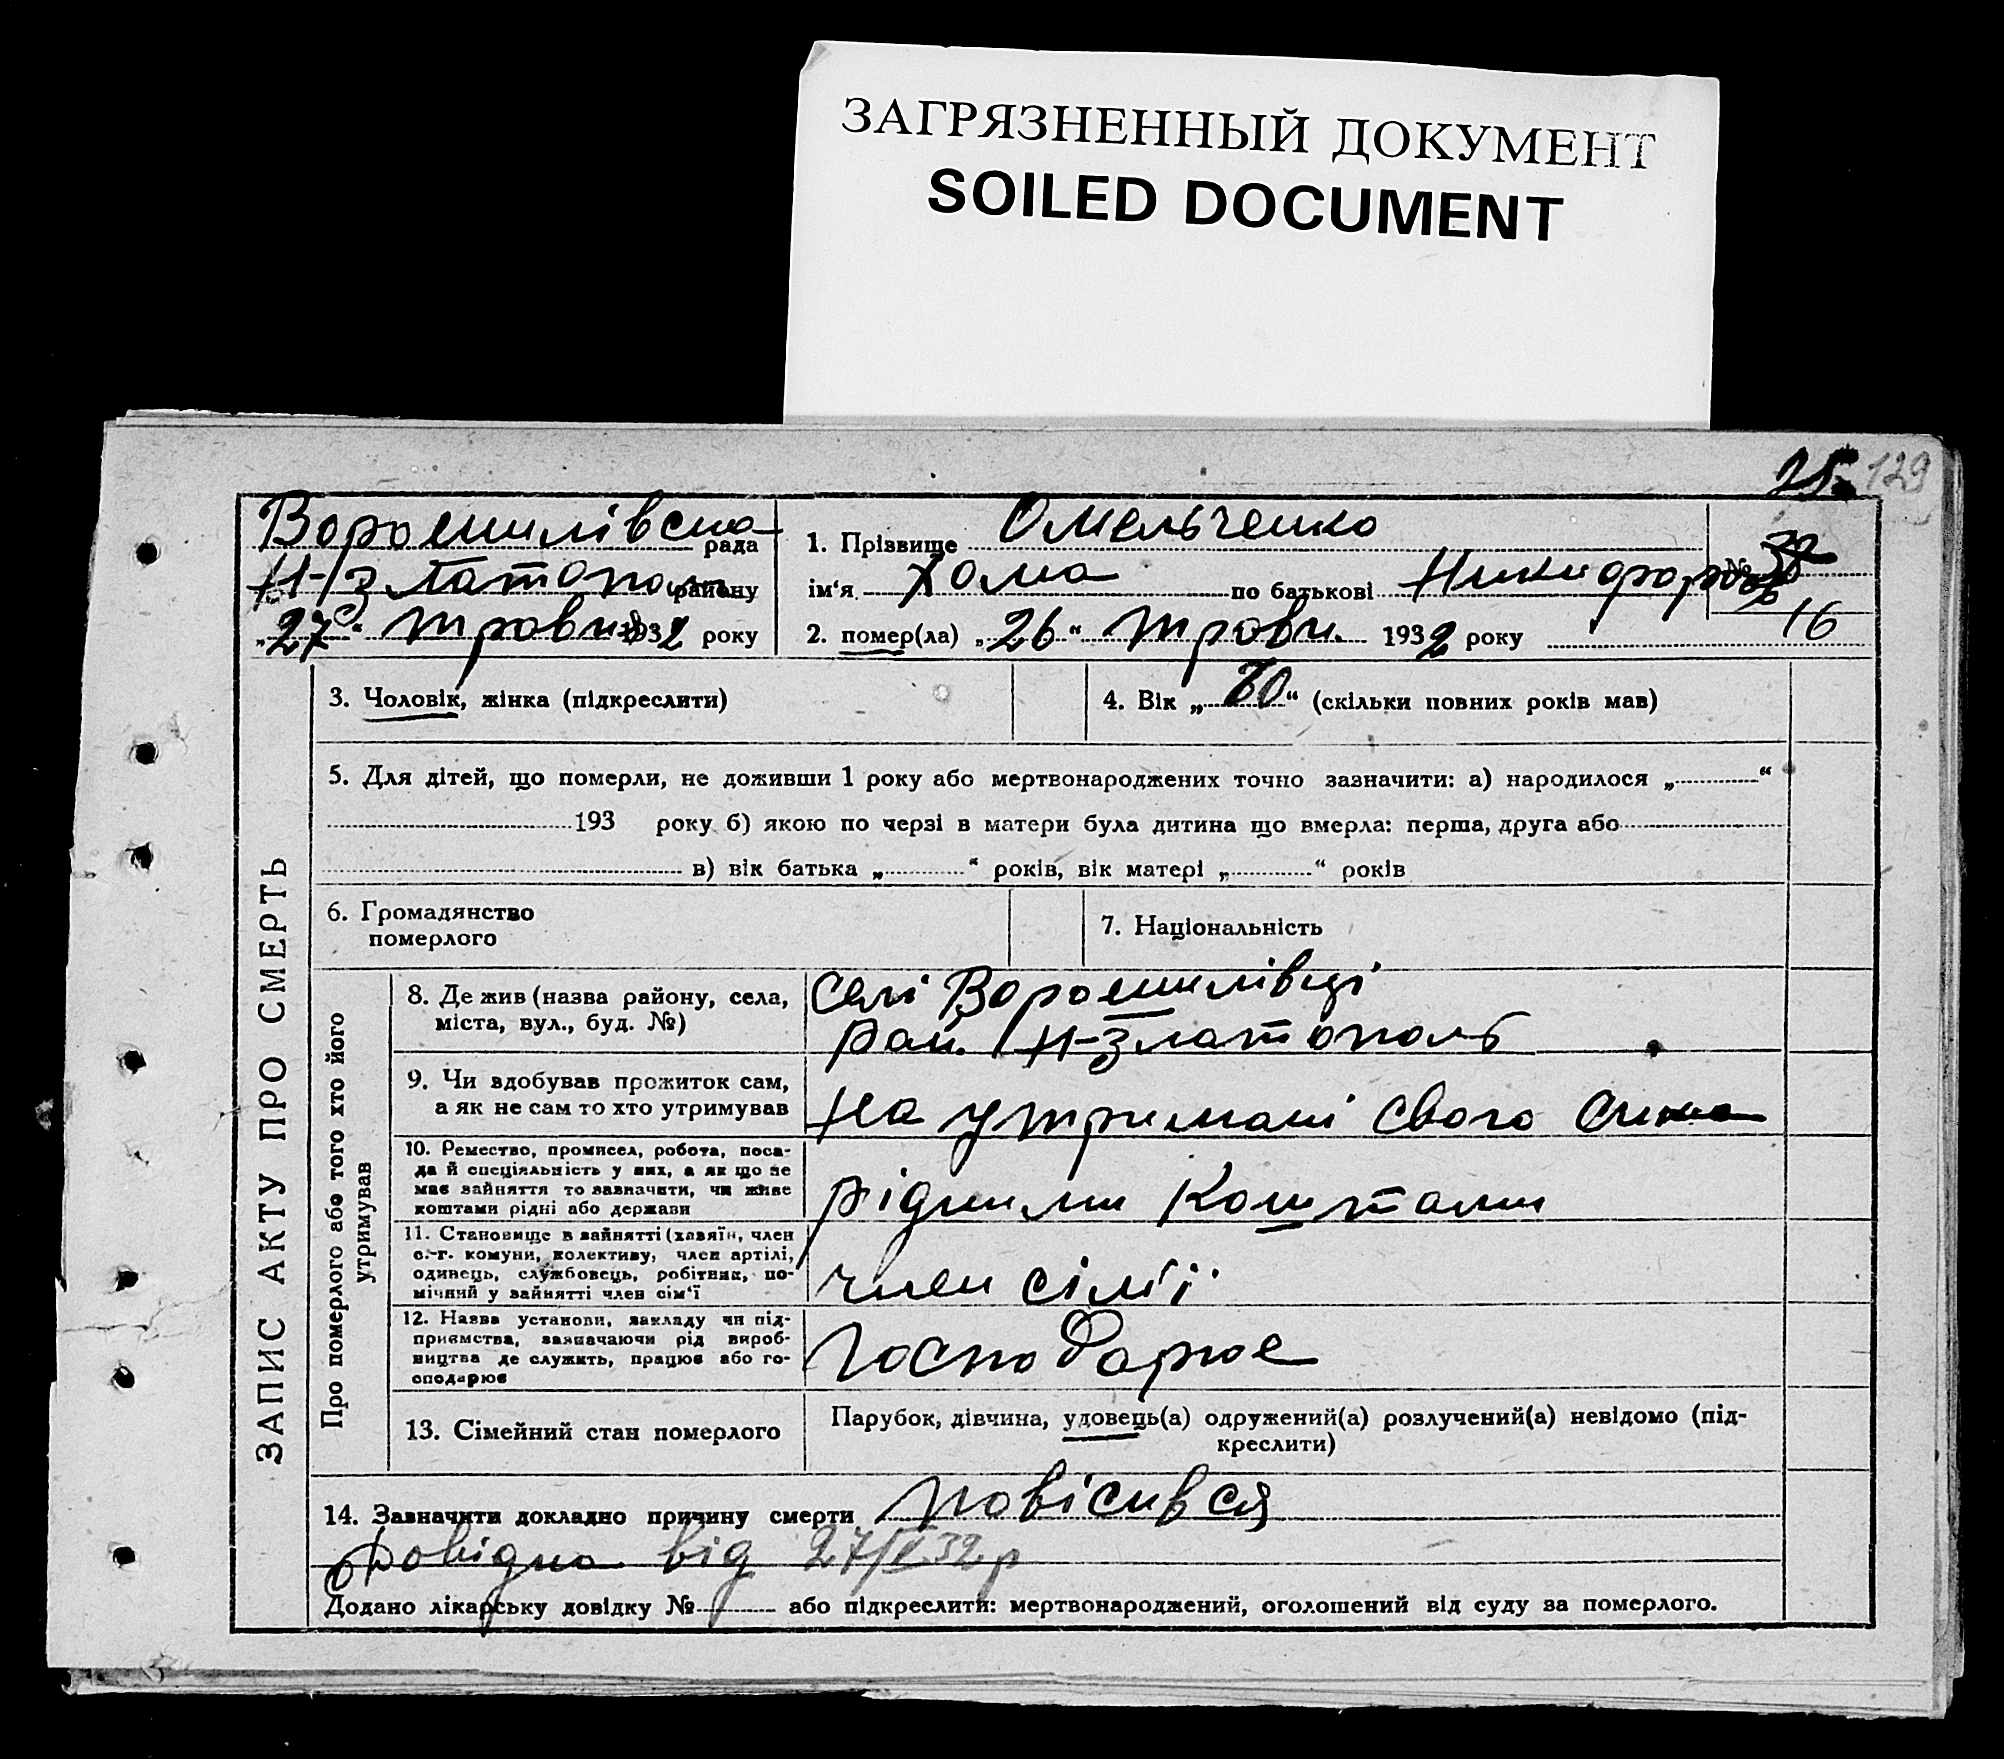 ЗАГРЯЗНЕННЫЙ ДОКУМЕНТ
SOILED DOCUMENT
129
Ворошилівська рада
Н-Златополь району
„27“ травня 1932 року
1. Прізвище Омельченко
ім‘я Хома по батькові Никифоров №
16
2. помер(ла) „26“ травн. 1932 року
ЗАПИС АКТУ ПРО СМЕРТЬ
3. Чоловік, жінка (підкреслити)
4. Вік „80“ (скільки повних років мав)
5. Для дітей, що померли, не доживши 1 року або мертвонароджених точно зазначити: а) народилося „ “
193 року б) якою по черзі в матери була дитина що вмерла: перша, друга або
в) вік батька „ “ років, вік матері „ “ років
6. Громадянство
померлого
7. Національність
Про померлого або того хто його
утримував
8. Де жив (назва району, села,
міста, вул., буд. №)
селі Ворошилівці
рай. Н-Златополь
9. Чи вдобував прожиток сам,
а як не сам то хто утримував
На утримані свого сина
10. Ремество, промисел, робота, поса-
да й спеціяльність у них, а як що не
має зайняття то зазначити, чи живе
коштами рідні або держави
рідними коштами
11. Становище в зайнятті (хазяїн, член
с.-г. комуни, колективу, член артілі,
одинець, службовець, робітник, по-
мічний у зайнятті член сім‘ї
член сім'ї
12. Назва установи, закладу чи під-
приємства, зазначаючи рід вироб-
ництва де служить, працює або го-
сподарює
Господарює
13. Сімейний стан померлого
Парубок, дівчина, удовець(а) одружений(а) розлучений(а) невідомо (під-
креслити)
14. Зазначити докладно причину смерти повісився
Довідка від 27/V 32 р
Додано лікарську довідку № або підкреслити: мертвонароджений, оголошений від суду за померлого.